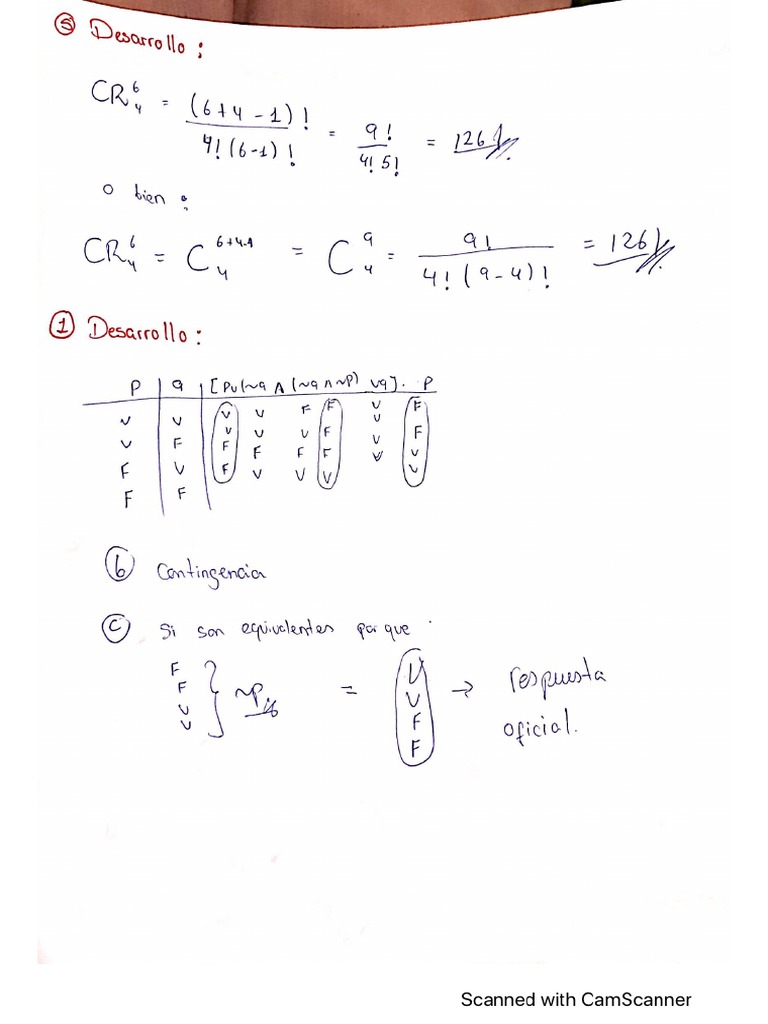 ⑤ Desarrollo :
CR⁶₄ = (6+4-1)! / 4!(6-1)! = 9! / 4!5! = 126
o bien :
CR⁶₄ = C⁶⁺⁴⁻¹₄ = C⁹₄ = 9! / 4!(9-4)! = 126
① Desarrollo :
P | q | [Pv(~q ∧ (~q ∧ ~P) vq]. P
V V V V F F V F
V F V V V F V F
F V F F F F V V
F F F V V V V V
ⓑ Contingencia
ⓒ Si son equivalentes por que
F
F
V
V
} ~P =
V
V
F
F
→ respuesta
oficial.
Scanned with CamScanner